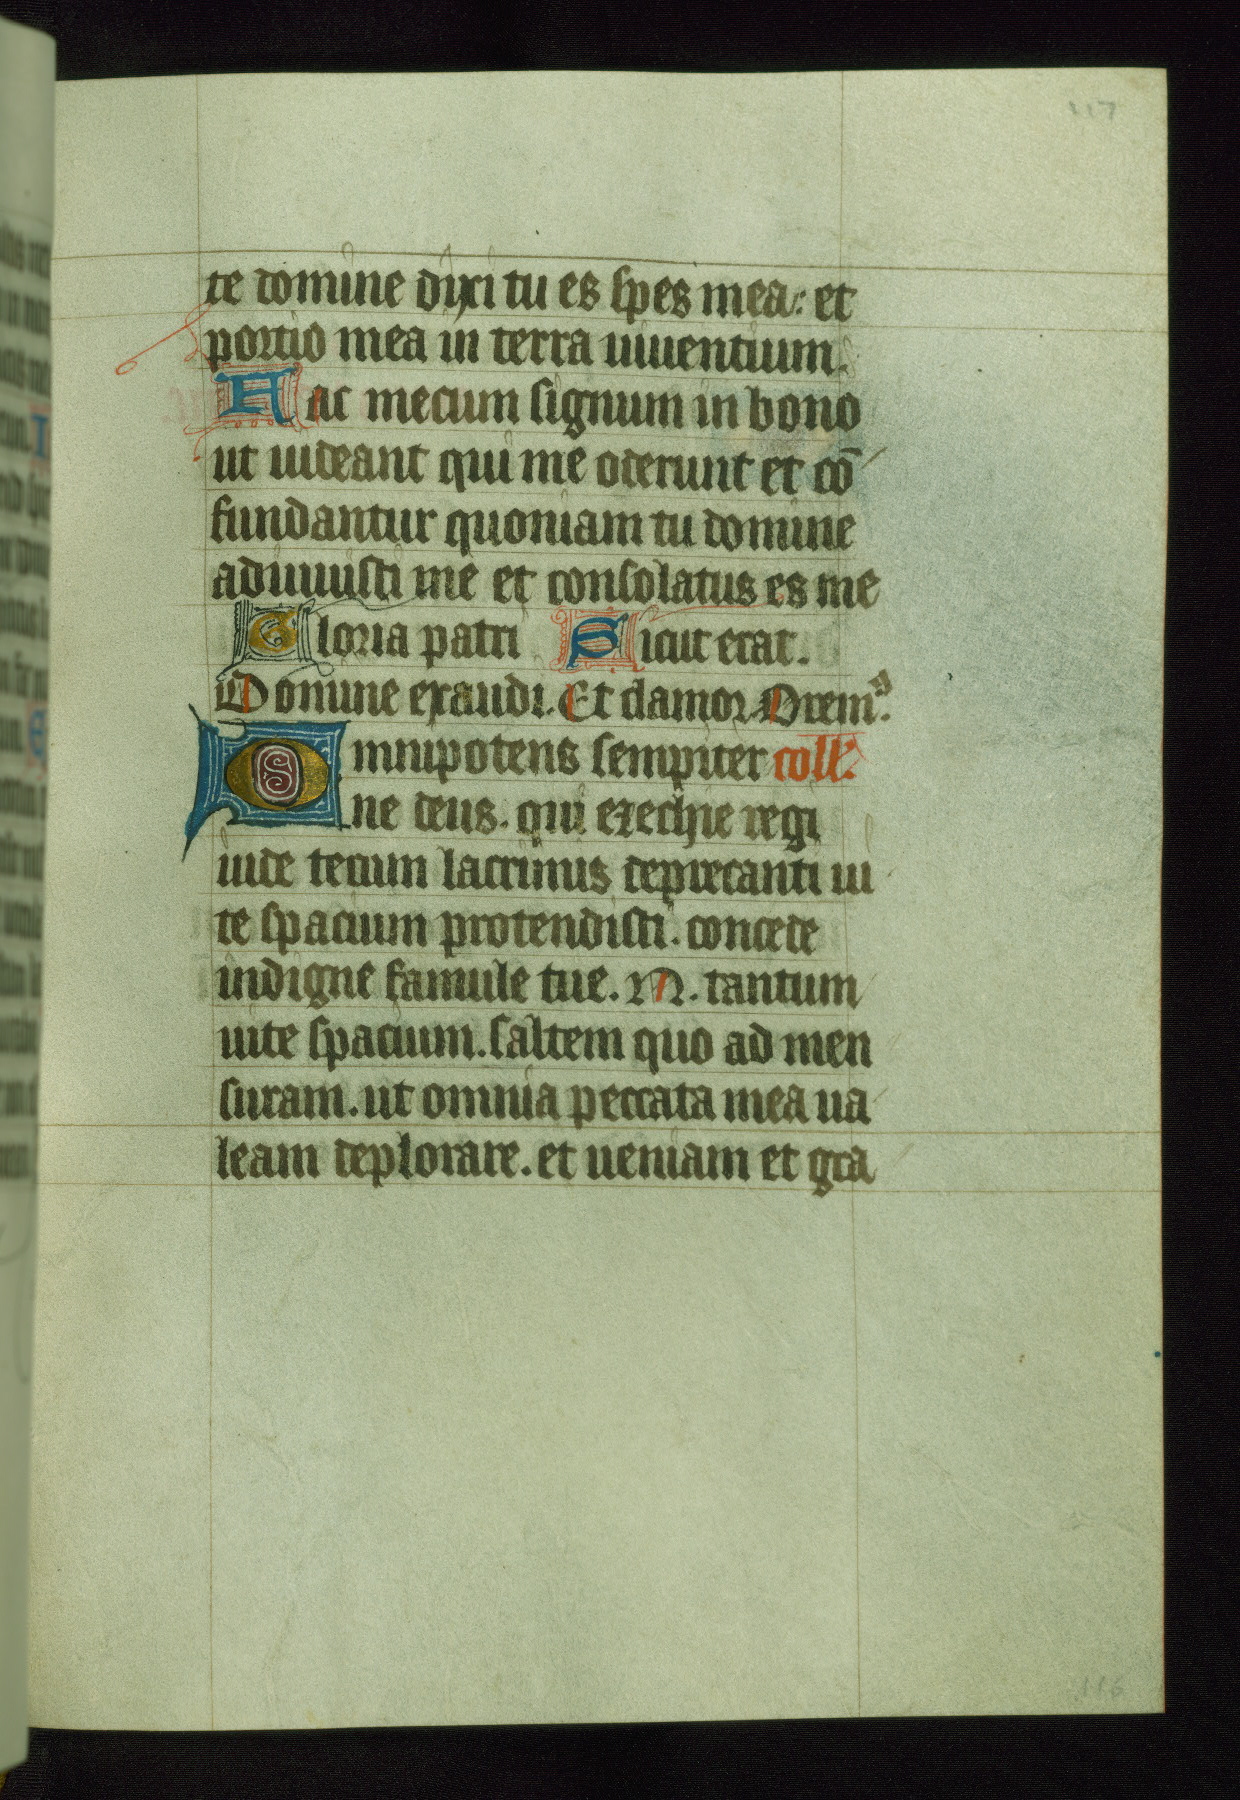 117
te domine dixi tu es spes mea: et
portio mea in terra uiuentium.
Fac mecum signum in bono
ut uideant qui me oderunt et cō
fundantur quoniam tu domine
adiuuisti me et consolatus es me
Gloria patri Sicut erat.
Domine exaudi. Et clamor. Orem9.
Omnipotens sempiter coll.
ne deus. qui ezechie regi
iude tecum lacrimis deprecanti ui
te spacium protendisti. concede
indigne famule tue. N. tantum
uite spacium. saltem quo ad men
suram. ut omnia peccata mea ua
leam deplorare. et ueniam et gra
116